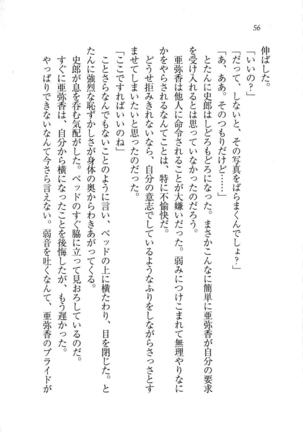 56
伸ばした。
「いいの？」
「だって、しないと、その写真をばらまくんでしょ？」
「あ、ああ。そのつもりだけど……」
とたんに史郎はしどろもどろになった。まさかこんなに簡単に亜弥香が自分の要求
を受け入れるとは思っていなかったのだろう。
亜弥香は他人に命令されることが大嫌いだった。弱みにつけこまれて無理やりなに
かをやらされるなんてことは、特に不愉快だ。
どうせ拒みきれないなら、自分の意志でしているようなふりをしながらさっさとす
ませてしまいたいと思ったのだった。
「ここですればいいのね」
ことさらなんでもないことのように言い、ベッドの上に横たわり、目を閉じた。と
たんに強烈な恥ずかしさが身体の奥からわきあがってくる。
史郎が息を呑む気配がした。ベッドのすぐ脇に立って見おろしているのだ。
すぐに亜弥香は、自分から横になったことを後悔したが、もう遅かった。
やっぱりできないなんて今さら言えない。弱音を吐くなんて、亜弥香のプライドが